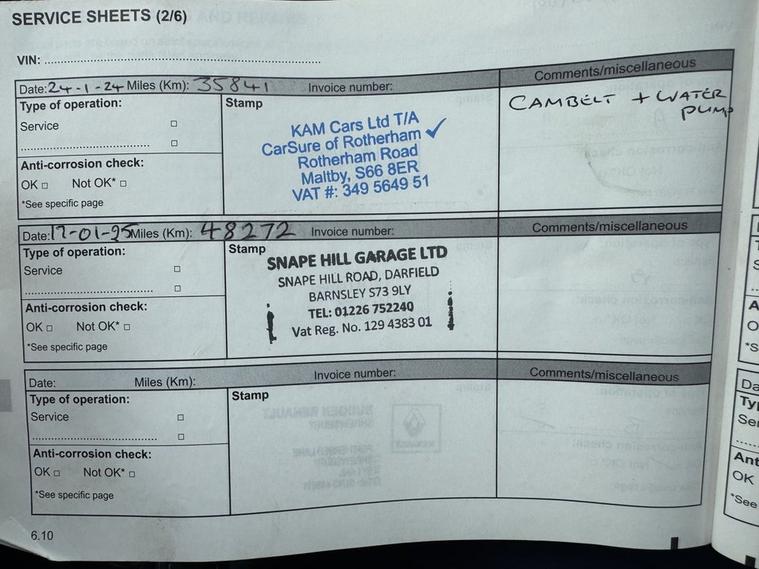 SERVICE SHEETS (2/6)
VIN:
Date: 24-1-24 Miles (Km): 35841 Invoice number: Comments/miscellaneous
Type of operation:
Service
Anti-corrosion check:
OK Not OK*
*See specific page
Stamp
KAM Cars Ltd T/A
CarSure of Rotherham
Rotherham Road
Maltby, S66 8ER
VAT #: 349 5649 51
CAMBELT + WATER
PUMP
Date: 17-01-25 Miles (Km): 48272 Invoice number: Comments/miscellaneous
Type of operation:
Service
Anti-corrosion check:
OK Not OK*
*See specific page
Stamp
SNAPE HILL GARAGE LTD
SNAPE HILL ROAD, DARFIELD
BARNSLEY S73 9LY
TEL: 01226 752240
Vat Reg. No. 129 4383 01
Date: Miles (Km): Invoice number: Comments/miscellaneous
Type of operation:
Service
Anti-corrosion check:
OK Not OK*
*See specific page
Stamp
6.10